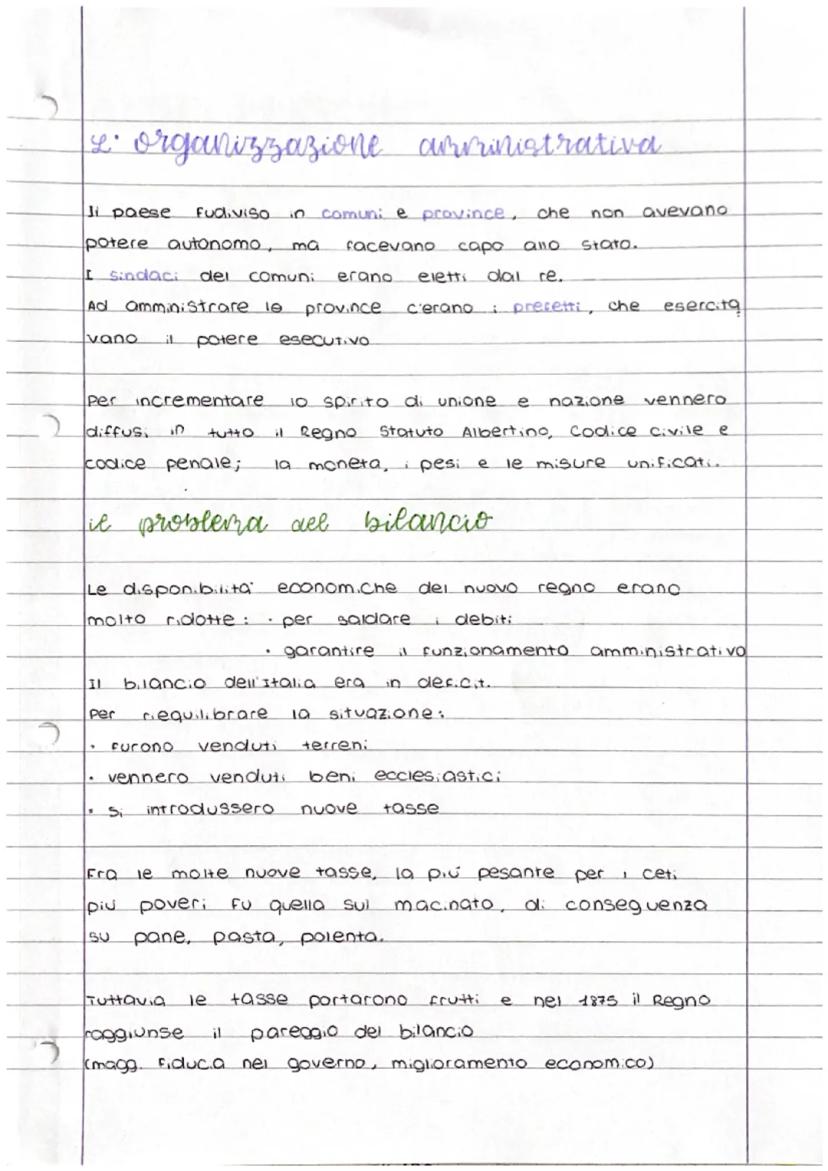 L'organizzazione amministrativa
Il paese fu diviso in comuni e province, che non avevano
potere autonomo, ma facevano capo allo stato.
I sindaci dei comuni erano eletti dal re.
Ad amministrare le province c'erano i prefetti, che esercita
vano il potere esecutivo
Per incrementare lo spirito di unione e nazione vennero
diffusi in tutto il Regno Statuto Albertino, Codice civile e
codice penale; la moneta, i pesi e le misure unificati.
il problema del bilancio
Le disponibilità economiche del nuovo regno erano
molto ridotte: • per saldare i debiti
• garantire il funzionamento amministrativo
Il bilancio dell'Italia era in deficit.
Per riequilibrare la situazione:
• furono venduti terreni
• vennero venduti beni ecclesiastici
• si introdussero nuove tasse
Fra le molte nuove tasse, la più pesante per i ceti
più poveri fu quella sul macinato, di conseguenza
su pane, pasta, polenta.
Tuttavia le tasse portarono frutti e nel 1875 il Regno
raggiunse il pareggio del bilancio
(magg. fiduca nel governo, miglioramento economico)